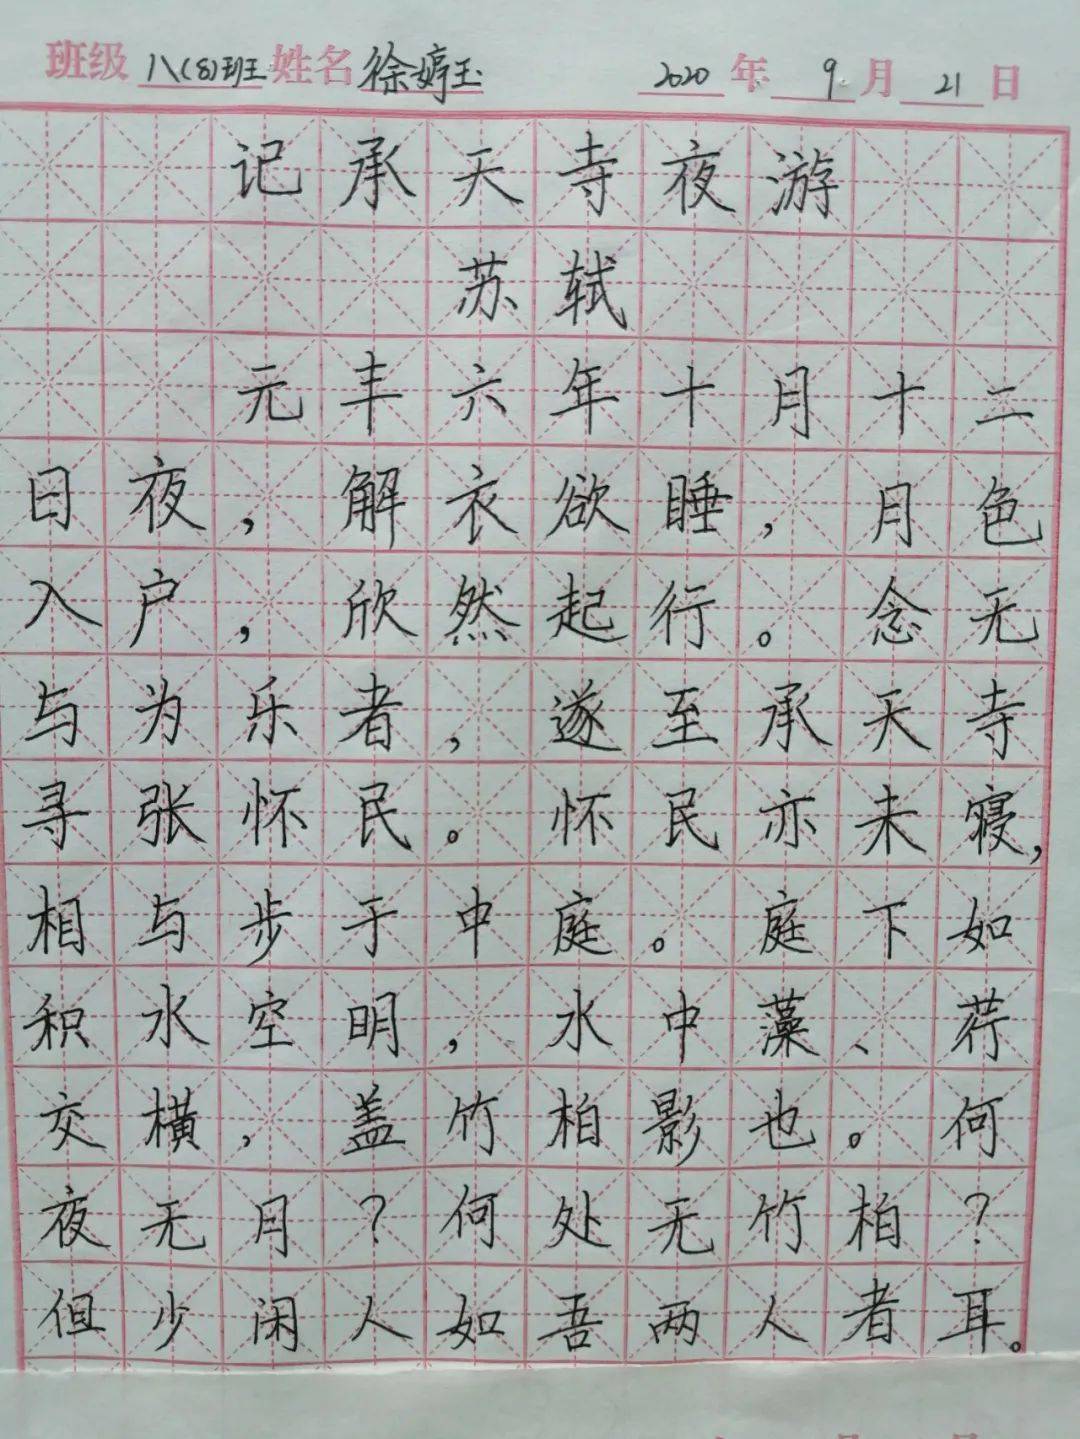 班级 八(8)班 姓名 徐婷玉 2020 年 9 月 21 日
记承天寺夜游
苏轼
元丰六年十月十二
日夜，解衣欲睡，月色
入户，欣然起行。念无
与为乐者，遂至承天寺
寻张怀民。怀民亦未寝，
相与步于中庭。庭下如
积水空明，水中藻、荇
交横，盖竹柏影也。何
夜无月？何处无竹柏？
但少闲人如吾两人者耳。